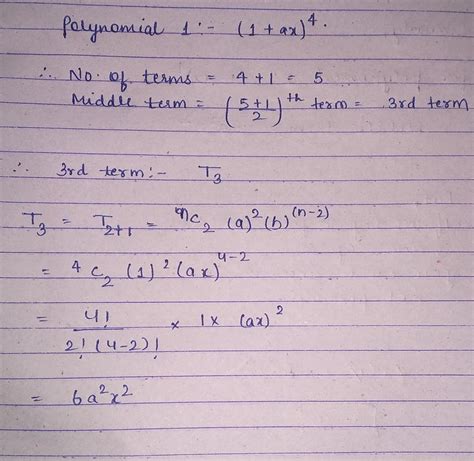 Polynomial 1 :- (1 + ax)^4.
∴ No. of terms = 4 + 1 = 5
Middle term = (5+1/2)^th term = 3rd term
∴ 3rd term :- T_3
T_3 = T_2+1 = ^nC_2 (a)^2 (b)^(n-2)
= ^4C_2 (1)^2 (ax)^4-2
= 4!/2!(4-2)! × 1 × (ax)^2
= 6a^2x^2